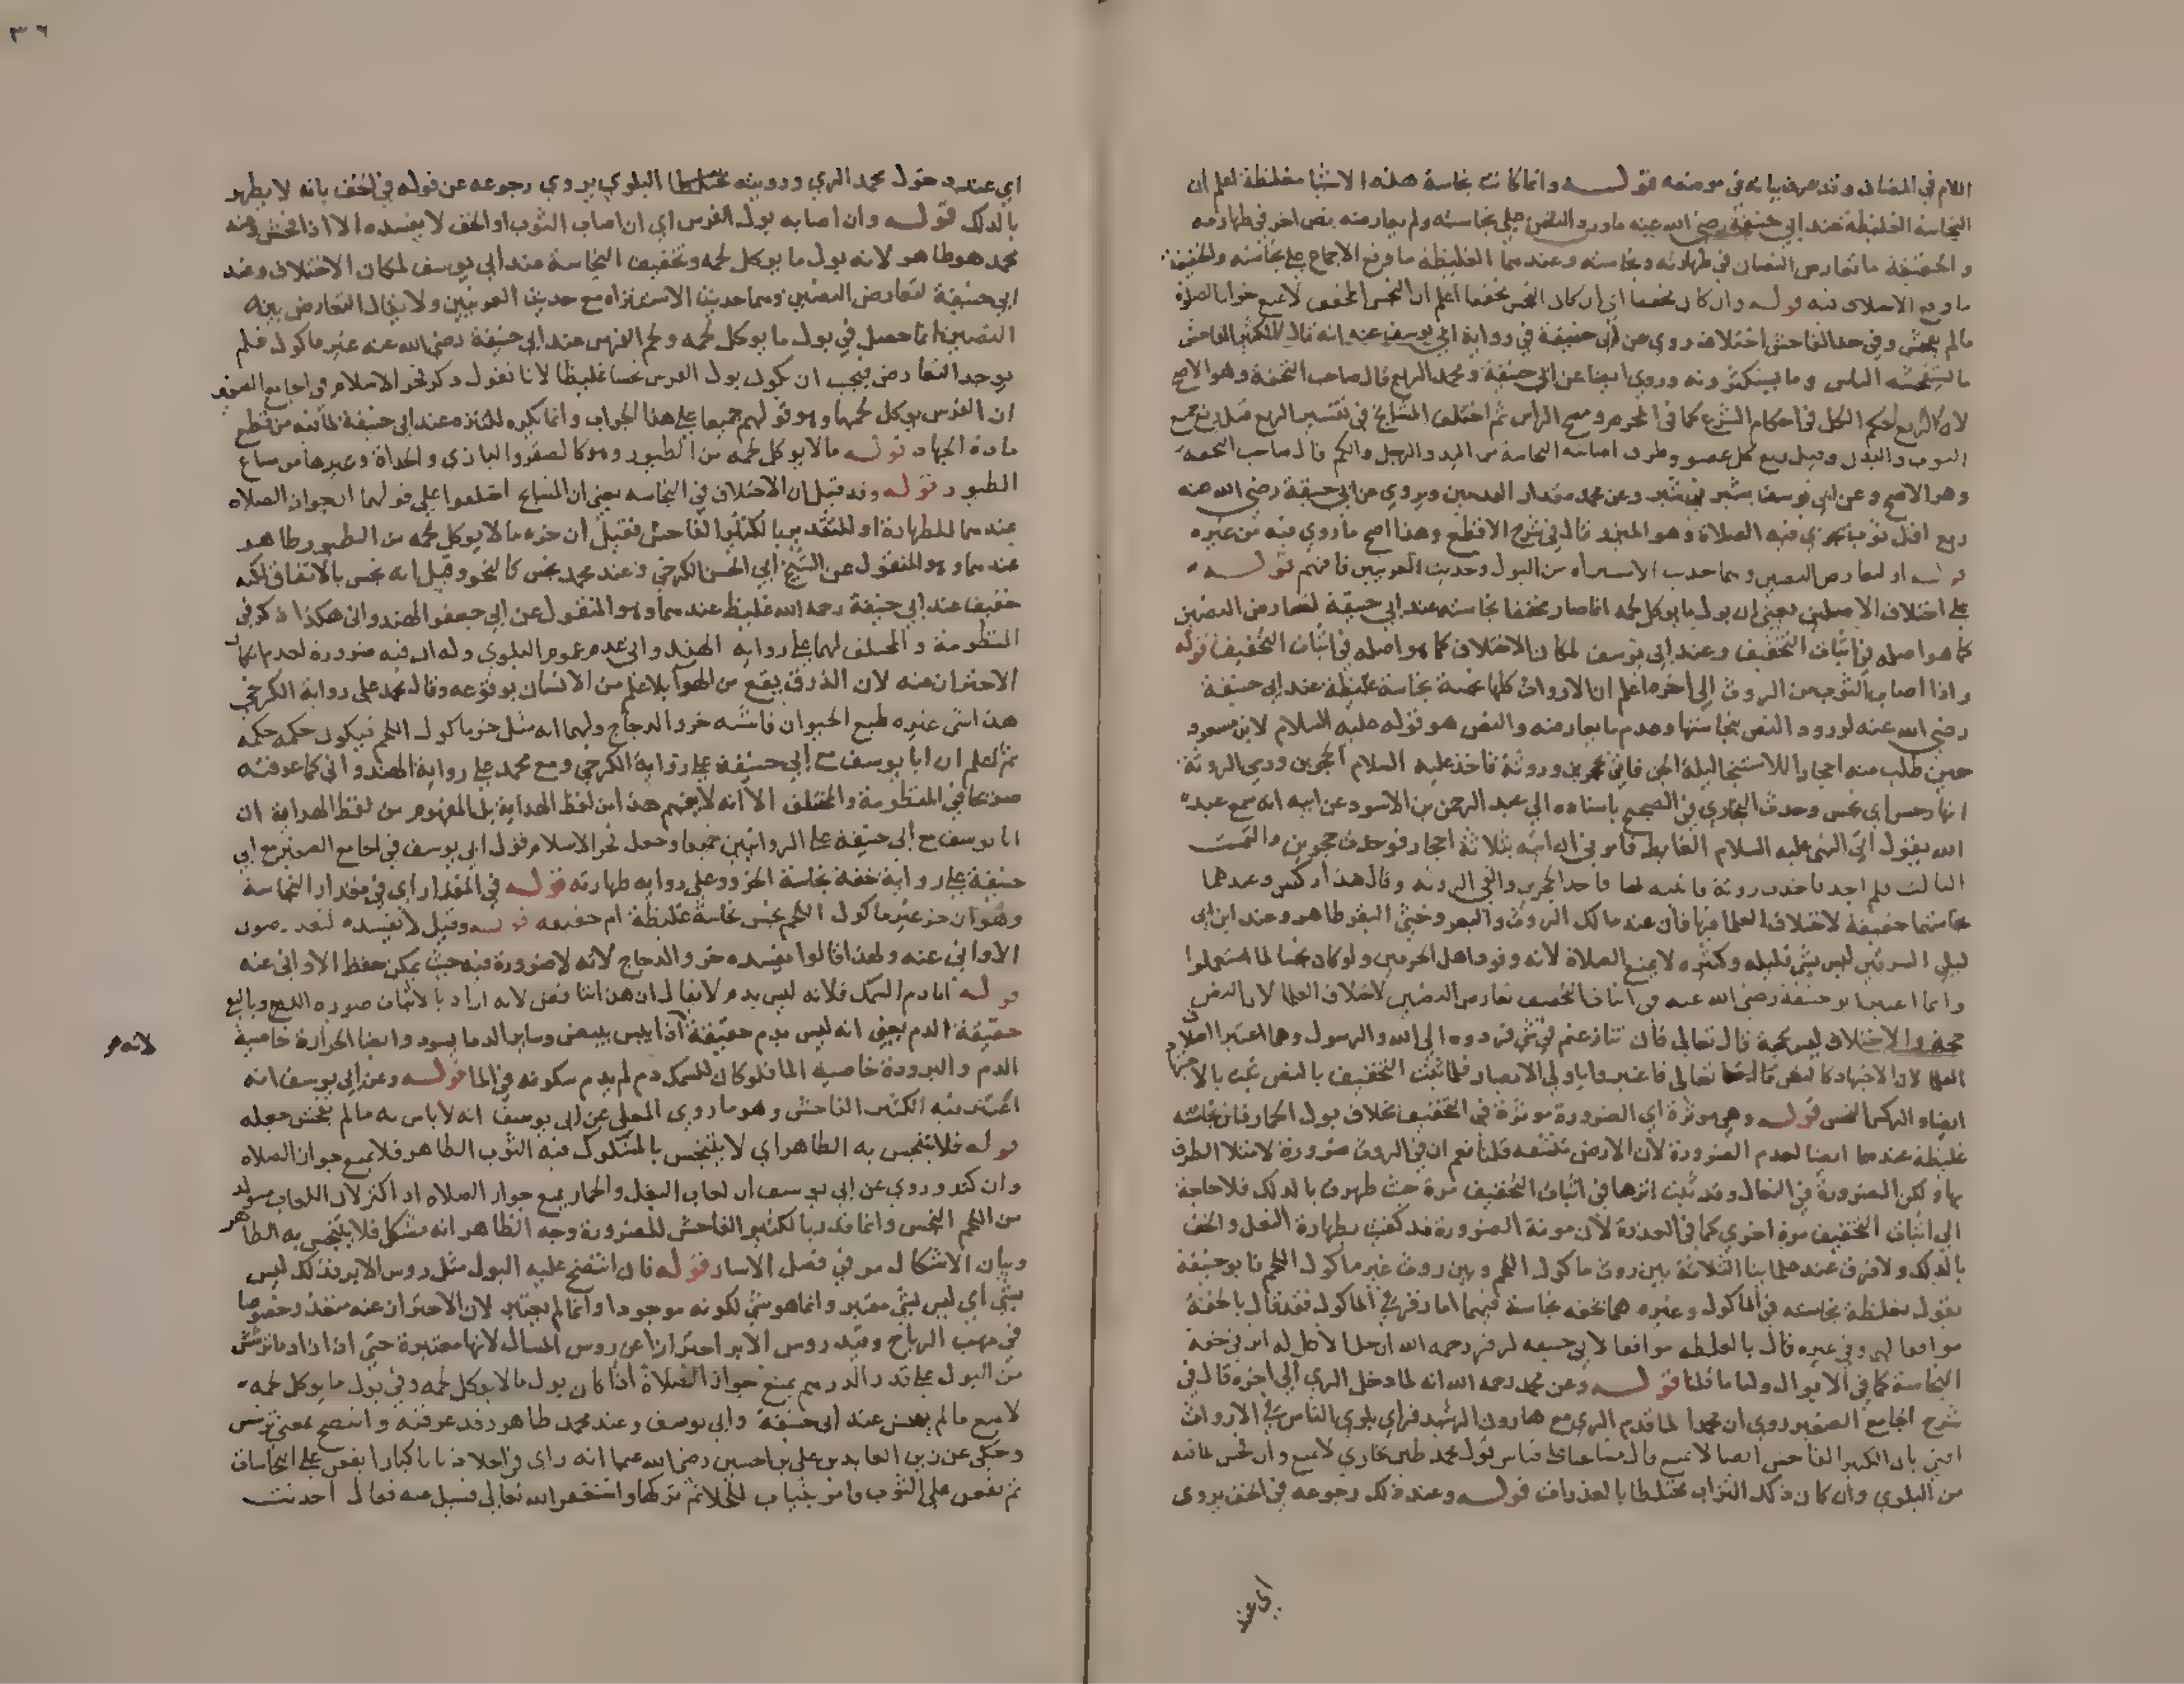 اللام في المضاف وقد عرف بيانه في موضعه قولـــه وانما كانت نجاسة هذه الاشيا مغلظة اعلم ان
النجاسة الغليظة عند ابي حنيفة رضي الله عنه ماورد النص على نجاسته ولم يعارضه نص اخر في طهارته
والخفيفة ما تعارض النصان في طهارته ونجاسته وعندهما الغليظة ما وقع الاجماع على نجاسته والخفيفة
ما وقع الاختلاف فيه قولـــه وان كان مخففا اي ان كان النجس مخففا اعلم ان النجس المخفف لا يمنع جواز الصلاة
مالم يفحش وفي حد الفاحش اختلاف روي عن ابي حنيفة في رواية ابي يوسف عنه انه قال الكثير الفاحش
ما يستفحشه الناس وما يستكثرونه وروي ايضا عن ابي حنيفة ومحمد الربع قال صاحب التحفة وهو الاصح
لان للربع حكم الكل في احكام الشرع كما في المحرم ومسح الراس ثم اختلف المشايخ في تفسير الربع قيل ربع جميع
الثوب والبدن وقيل ربع كل عضو وطرف اصابته النجاسة من اليد والرجل والكم قال صاحب التحفة
وهو الاصح وعن ابي يوسف شبر في شبر وعن محمد مقدار القدمين ويروي عن ابي حنيفة رضي الله عنه
ربع اقل ثوب تجوز فيه الصلاة وهو الميزر قال في شرح الاقطع وهذا اصح ما روي فيه من غيره
قولـــه او لتعارض النصين وهما حديث الاستنزاه من البول وحديث العرنيين فافهم قولـــه
على اختلاف الاصلين يعني ان بول ما يوكل لحمه انما صار مخففا نجاسته عند ابي حنيفة لتعارض النصين
كما هو اصله في اثبات التخفيف وعند ابي يوسف لمكان الاختلاف كما هو اصله في اثبات التخفيف قوله
واذا اصاب الثوب من الروث الى اخره اعلم ان الارواث كلها نجسة نجاسة غليظة عند ابي حنيفة
رضي الله عنه لورود النص بنجاستها وعدم ما يعارضه والنص هو قوله عليه السلام لابن مسعود
حين طلب منه احجارا للاستنجا ليلة الجن فاتي بحجرين وروثة فاخذ عليه السلام الحجرين ورمي الروثة
انها رجس اي نجس وحدث البخاري في الصحيح باسناده الي عبد الرحمن بن الاسود عن ابيه انه سمع عبد
الله يقول اتي النبي عليه السلام الغايط فامرني ان اتيه بثلاثة احجار فوجدت حجرين والتمست
الثالث فلم اجد فاخذت روثة فاتيته بها فاخذ الحجرين والقي الروثة وقال هذا ركس وعندهما
نجاستها خفيفة لاختلاف العلما فيها فان عند مالك الروث والبعر وخثي البقر طاهر وعند ابن ابي
ليلي السرقين ليس بشي قليله وكثيره لا يمنع الصلاة لانه وقود اهل الحرمين ولو كان نجسا لما استعملوا
وانما اعتبر ابو حنيفة رضي الله عنه في اثبات التخفيف تعارض النصين لا خلاف العلما لان النص
حجة والاختلاف ليس بحجة قال تعالي فان تنازعتم في شي فردوه الي الله والرسول وهما اعتبرا اختلاف
العلما لان الاجتهاد كالنص قال تعالي فاعتبروا يا اولي الابصار فلما ثبت التخفيف بالنص ثبت بالاجتهاد
ايضا والركس النجس قولـــه وهي موثرة اي الضرورة موثرة في التخفيف بخلاف بول الحمار فان نجاسته
غليظة عندهما ايضا لعدم الضرورة لان الارض تنشفه قلنا نعم ان في الروث ضرورة لامتلا الطرق
بها ولكن الضرورة في النعال وقد ثبت اثرها في اثبات التخفيف مرة حيث طهرت بالدلك فلا حاجة
الي اثبات التخفيف مرة اخري كما في العذرة لان مونة الضرورة قد كفيت بطهارة النعل والخف
بالدلك ولا فرق عند علماينا الثلاثة بين روث ماكول اللحم وبين روث غير ماكول اللحم فابو حنيفة
يقول بغلظة نجاسته في الماكول وغيره هما بخفة نجاسة فيهما اما زفر في الماكول فقد قال بالخفة
موافقا لهما وفي غيره قال بالغلظة موافقا لابي حنيفة لزفر رحمه الله ان حل الاكل له اثر في خفة
النجاسة كما في الابوال ولنا ما قلنا قولـــه وعن محمد رحمه الله انه لما دخل الري الي اخره قال في
شرح الجامع الصغير روي ان محمدا لما قدم الري مع هارون الرشيد فراي بلوي الناس في الارواث
افتي بان الكثير الفاحش ايضا لا يمنع قال مشايخنا على قياس قول محمد طين بخاري لا يمنع وان فحش لما فيه
من البلوي وان كان ذلك التراب مختلطا بالعذرات قولـــه وعند ذلك رجوعه في الخف يروي
اي عند
٣٦
اي عند دخول محمد الري ورويته البلوي يروي رجوعه عن قوله في الخف بانه لا يطهر
بالدلك قولـــه وان اصابه بول الفرس اي ان اصاب الثوب او الخف لا يفسده الا اذا فحش وعند
محمد هو طاهر لانه بول ما يوكل لحمه وتخفيف النجاسة عند ابي يوسف لمكان الاختلاف وعند
ابي حنيفة لتعارض النصين وهما حديث الاستنزاه مع حديث العرنيين ولا يقال التعارض بين
النصين انما حصل في بول ما يوكل لحمه ولحم الفرس عند ابي حنيفة رضي الله عنه غير ماكول فلم
يوجد التعارض فيجب ان يكون بول الفرس نجسا غليظا لانا نقول ذكر فخر الاسلام في الجامع الصغير
ان الفرس يوكل لحمها وهو قولهم جميعا على هذا الجواب وانما يكره للتنزه عند ابي حنيفة لما فيه من قطع
مادة الجهاد قولـــه مالا يوكل لحمه من الطيور وهو كالصقر والبازي والحداة وغيرها من سباع
الطيور قولـــه وقد قيل ان الاختلاف في النجاسه يعني ان المشايخ اختلفوا علي قولهما ان جواز الصلاه
عندهما للطهارة او للتقدير بالكثير الفاحش فقيل ان خرء مالا يوكل لحمه من الطيور طاهر
عندهما وهو المنقول عن الشيخ ابي الحسن الكرخي وعند محمد نجس كالنجو وقيل انه نجس بالاتفاق لكنه
خفيف عند ابي حنيفة رحمه الله غليظ عندهما وهو المنقول عن ابي جعفر الهندواني هكذا ذكر في
المنظومة والمختلف لهما على رواية الهندواني عدم عموم البلوي وله ان فيه ضرورة لعدم امكان
الاحتراز عنه لان الذرق يقع من الهوا بلا علم من الانسان بوقوعه وقال محمد على رواية الكرخي
هذا شي غيره طبع الحيوان فاشبه خرو الدجاج ولهما انه مثل خرء ماكول اللحم فيكون حكمه حكمه
ثم اعلم ان ابا يوسف مع ابي حنيفة على رواية الكرخي ومع محمد على رواية الهندواني كما عرفته
صريحا في المنظومة والمختلف الا انه لا يفهم هذا من لفظ الهداية بل المفهوم من لفظ الهداية ان
ابا يوسف مع ابي حنيفة على الروايتين جميعا وجعل فخر الاسلام قول ابي يوسف في الجامع الصغير مع ابي
حنيفة على رواية خفة نجاسة الخرو وعلي رواية طهارته قولـــه في المقدار اي في مقدار النجاسة
وهو ان خرء غير ماكول اللحم نجس نجاسة غليظة ام خفيفه قولـــه وقيل لا يفسده لتعذر صون
الاواني عنه ولهذا قالوا يفسده خرو الدجاج لانه لا ضرورة فيه حيث يمكن حفظ الاواني عنه
قولـــه اما دم السمك فلانه ليس بدم لا يقال ان هذا تناقض لانه اراد بالاثبات صورة الدم وبالنفي
حقيقة الدم يعني انه ليس بدم حقيقة اذا يبس يبيض وساير الدما يسود وايضا الحرارة خاصية
لانه م
الدم والبرودة خاصية الما فلو كان للسمك دم لم يدم سكونه في الما قولـــه وعن ابي يوسف انه
اعتبر فيه الكثير الفاحش وهو ما روي المعلي عن ابي يوسف انه لا باس به مالم يفحش جعله
قولـــه فلا يتنجس به الطاهر اي لا يتنجس بالمشكوك فيه الثوب الطاهر فلا يمنع جواز الصلاه
وان كثر وروي عن ابي يوسف ان لعاب البغل والحمار يمنع جواز الصلاه اذا كثر لان اللعاب متولد
من اللحم النجس وانما قدر بالكثير الفاحش للضرورة وجه الظاهر انه مشكل فلا يتنجس به الطاهر
وبيان الاشكال مر في فصل الاسار قولـــه فان انتضح عليه البول مثل روس الابر فذلك ليس
بشي اي ليس بشي معتبر وانما هو شي لكونه موجودا وانما لم يعتبر لان الاحتراز عنه متعذر خصوصا
في مهب الرياح وقيد روس الابر احترازا عن روس المسال لانها معتبرة حتي اذا زاد ما ترشش
من البول على قدر الدرهم يمنع جواز الصلاة اذا كان بول مالا يوكل لحمه وفي بول ما يوكل لحمه
لا يمنع مالم يفحش عند ابي حنيفة وابي يوسف وعند محمد طاهر وقد عرفته وانتضح بمعني ترشش
وحكي عن زين العابدين علي بن حسين رضي الله عنهما انه راي في الخلا ذبابا كبارا يقعن على النجاسات
ثم يقعن على الثوب فامر بثياب للخلا ثم تركها واستغفر الله تعالي فسيل عنه فقال احدثت